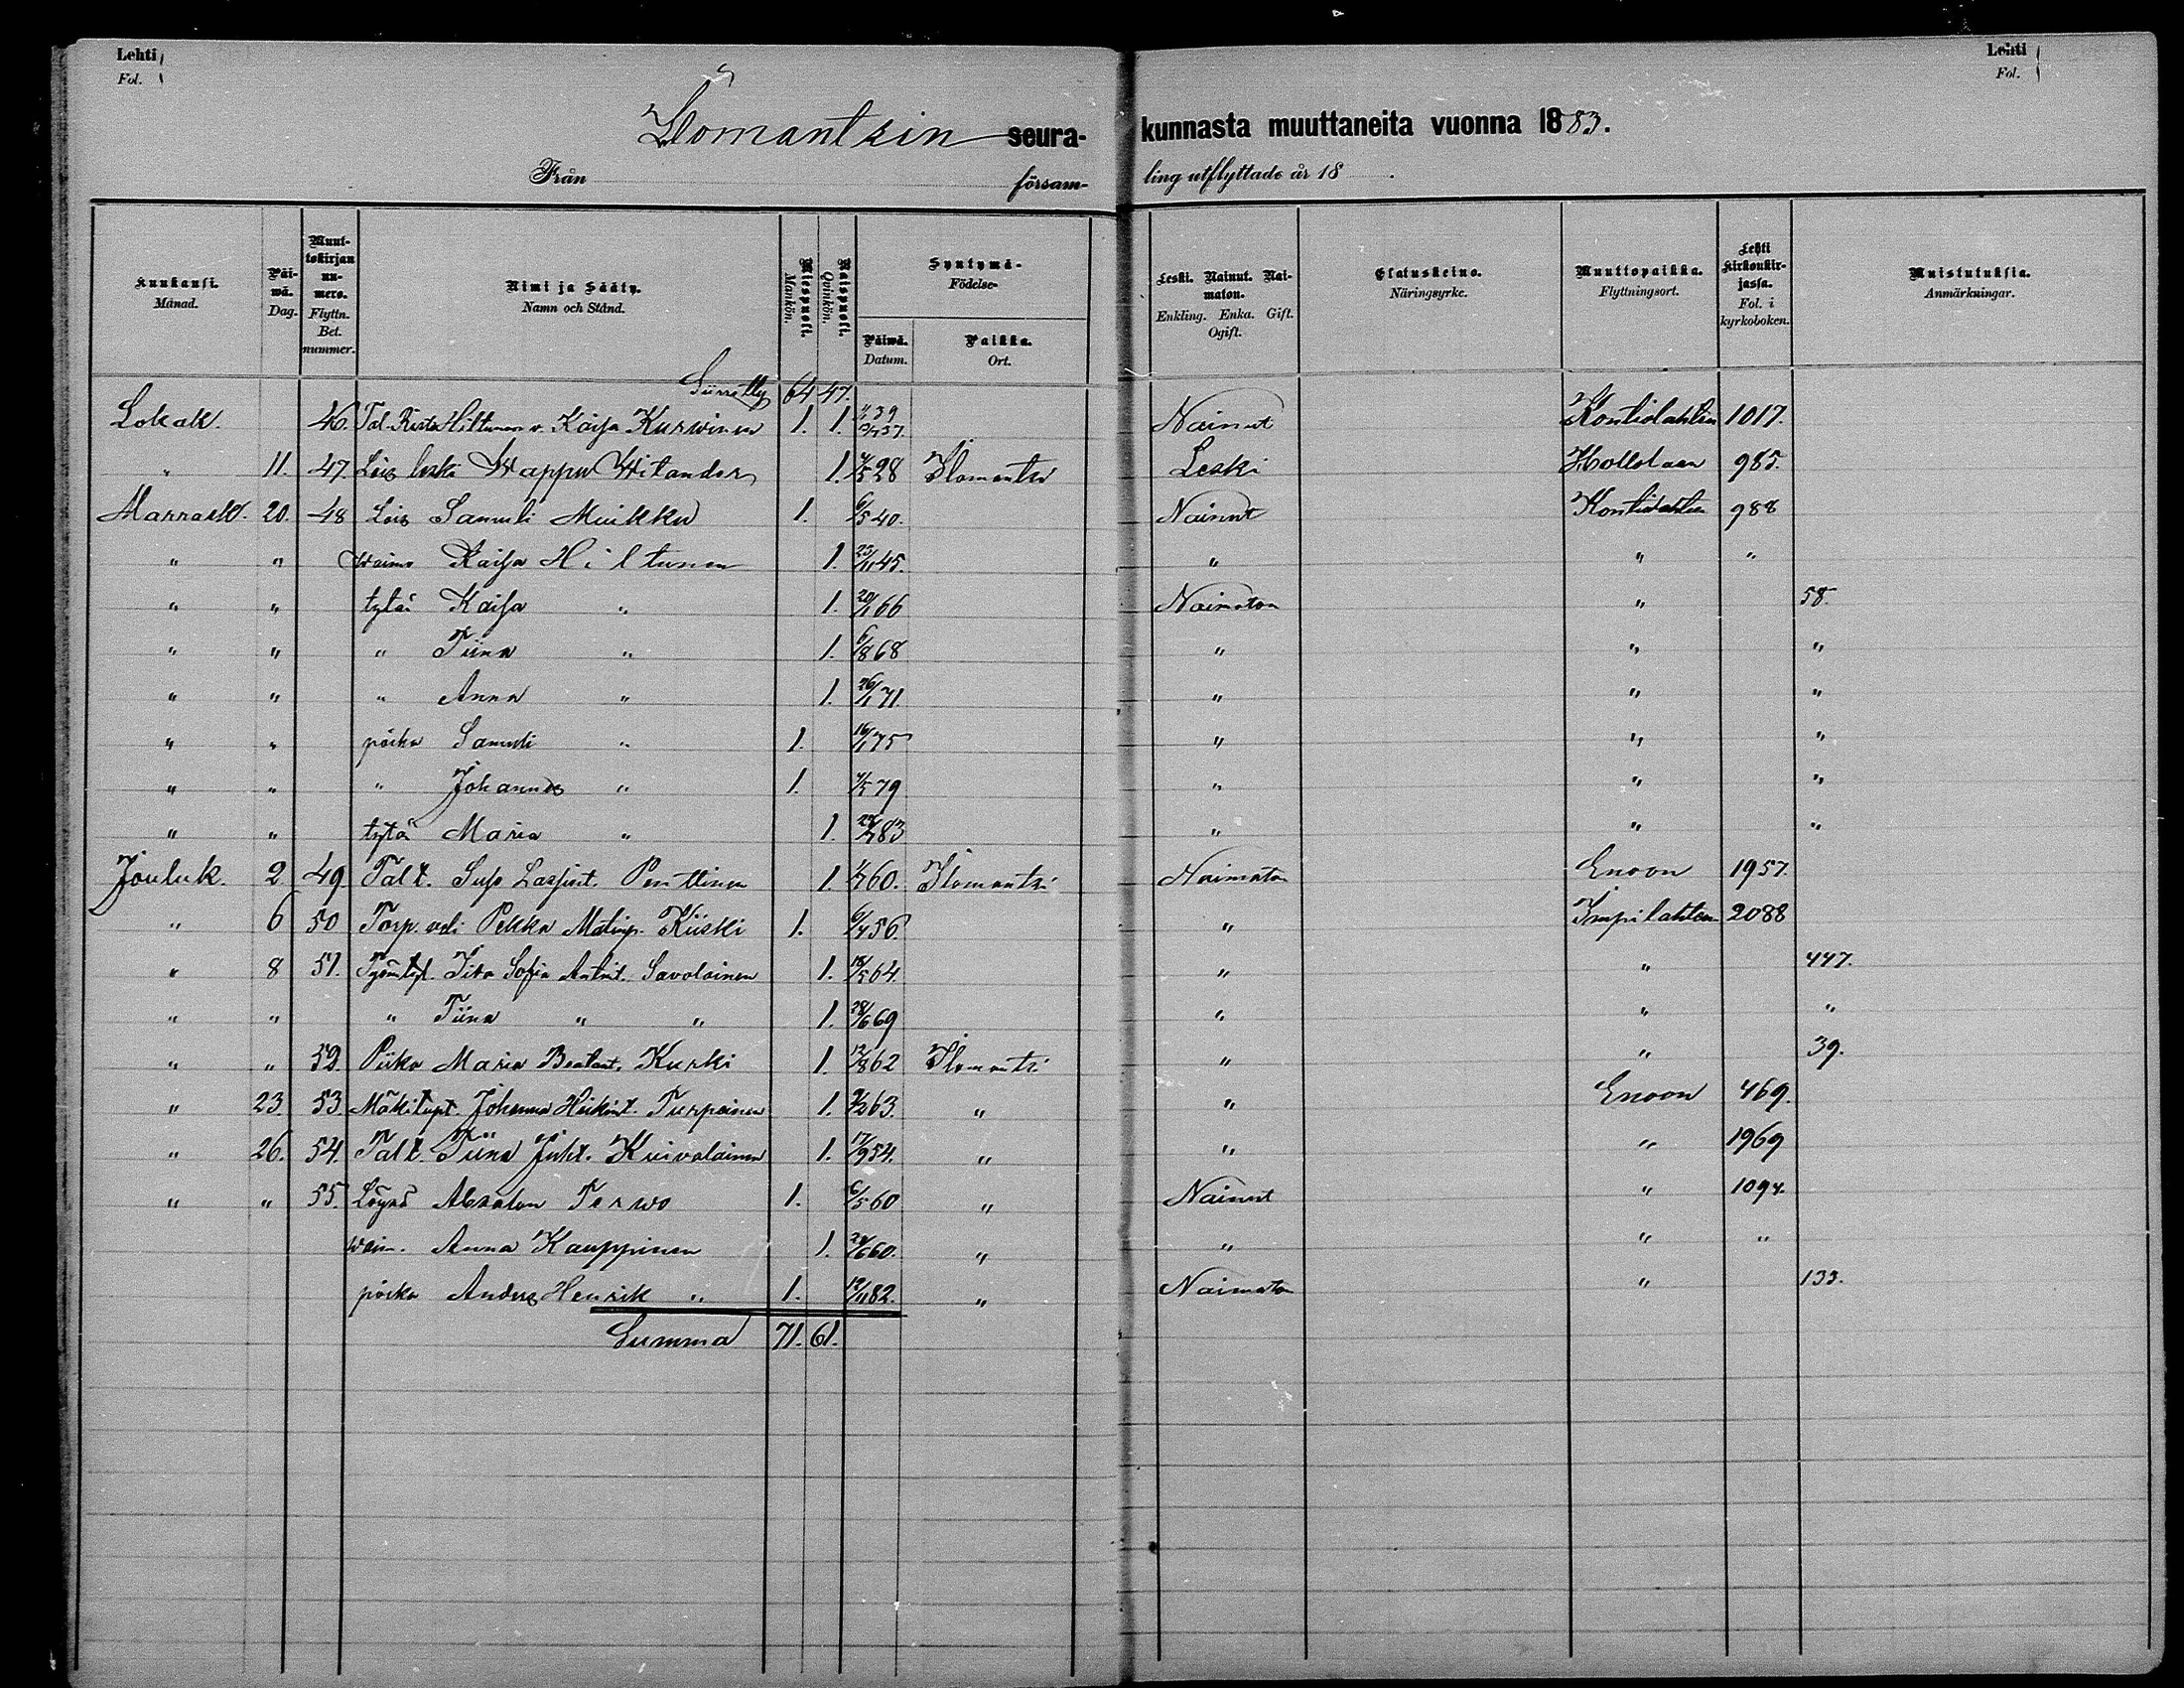 Lehti
Fol.
Lehti
Fol.
Ilomantsin seurakunnasta muuttaneita vuonna 1883.
Från församling utflyttade år 18 .
Kuukausi. Månad. Päiwä. Dag. Muuttokirjan numero. Flyttn. Bet. nummer. Nimi ja Sääty. Namn och Stånd. Miespuoli. Mankön. Naispuoli. Qvinkön. Syntymä- Födelse- Päiwä. Datum. Paikka. Ort. Leski. Nainut. Naimaton. Enkling. Enka. Gift. Ogift. Elatuskeino. Näringsyrke. Muuttopaikka. Flyttningsort. Lehti kirkonkirjassa. Fol. i kyrkoboken. Muistutuksia. Anmärkningar.
Siirretty 64 47.
Lokak. 46. Tal. Risto Hiltunen v. Kaisa Kurwinen 1. 1. 39 37. Nainut Kontiolahteen 1017.
" 11. 47. Lois leski Wappu Witander 1. 4/5 28 Ilomantsi Leski Hollolaan 985.
Marrask. 20. 48 Lois Samuli Muikku 1. 6/5 40. Nainut Kontiolahteen 988
" " waimo Kaisa Hiltunen 1. 23/11 45. " " "
" " tytär Kaisa " 1. 20/1 66 Naimaton " 58.
" " " Tiina " 1. 6/8 68 " " "
" " " Anna " 1. 26/1 71. " " "
" " poika Samuli " 1. 16/1 75 " " "
" " " Johannes " 1. 4/5 79 " " "
" " tytär Maria " 1. 83 " " "
Jouluk. 2 49. Talt. Penttinen 1. 1/7 60. Ilomantsi Naimaton Enoon 1957.
" 6 50 Torp. veli Pekka Matinp. Kiiski 1. 6/7 56. " Impilahteen 2088
" 8 51. Työmt. Sofia Antint. Savolainen 1. 18/5 64. " " 447.
" " " Tiina " " 1. 28/6 69 " " "
" " 52. Piika Maria Beatant. Kurki 1. 12/8 62 Ilomantsi " " 39.
" 23 53 Mäkitupt. Johanna Heikint. Turpeinen 1. 9/2 63. " " Enoon 469.
" 26. 54. Talt. Tiina Juht. Kuivalainen 1. 17/9 54. " " " 1969
" " 55. Absalon Terwo 1. 6/5 60 " Nainut " 1094.
waim. Anna Kauppinen 1. 24/6 60. " " " "
poika Anders Henrik " 1. 12/11 82. " Naimaton " 133.
Summa 71. 61.